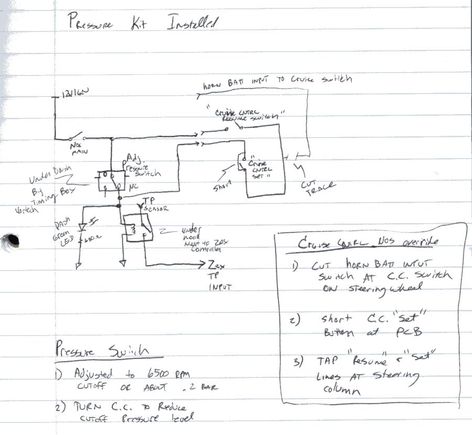 Pressure Kit Installed
12V/IGN
HORN BATT INPUT TO CRUISE SWITCH
"CRUISE CNTRL
RESUME SWITCH"
NOS
MAIN
Adj.
Pressure
Switch
"Cruise
CNTRL
SET"
short
CUT
TRACE
Under Dash
By
Timing Box
NC
TP
SENSOR
DASH
Green
LED
under
hood
Next to
Controller
Zex
TP
INPUT
Cruise CNTRL NOS override
1) CUT HORN BATT INPUT
Switch AT C.C. Switch
ON steering wheel
2) short C.C. "Set"
Button at PCB
3) TAP "Resume" & "Set"
Lines AT Steering
column
Pressure Switch
1) Adjusted to 6500 RPM
CUTOFF OR ABOUT .2 BAR
2) TURN C.C. TO Reduce
CUTOFF Pressure level